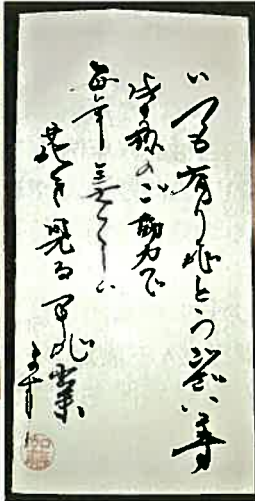 いつも有り難とうございます
皆様のご協力で
毎年美しい
花を見る事が出来
ます